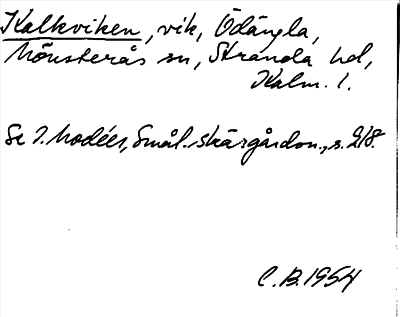 Kalkviken, vik, Ödängla,
Mönsterås sn, Stranda hd,
Kalm. l.
Se I. Modéer, Smål. skärgårdsn., s. 218.
C.B. 1954